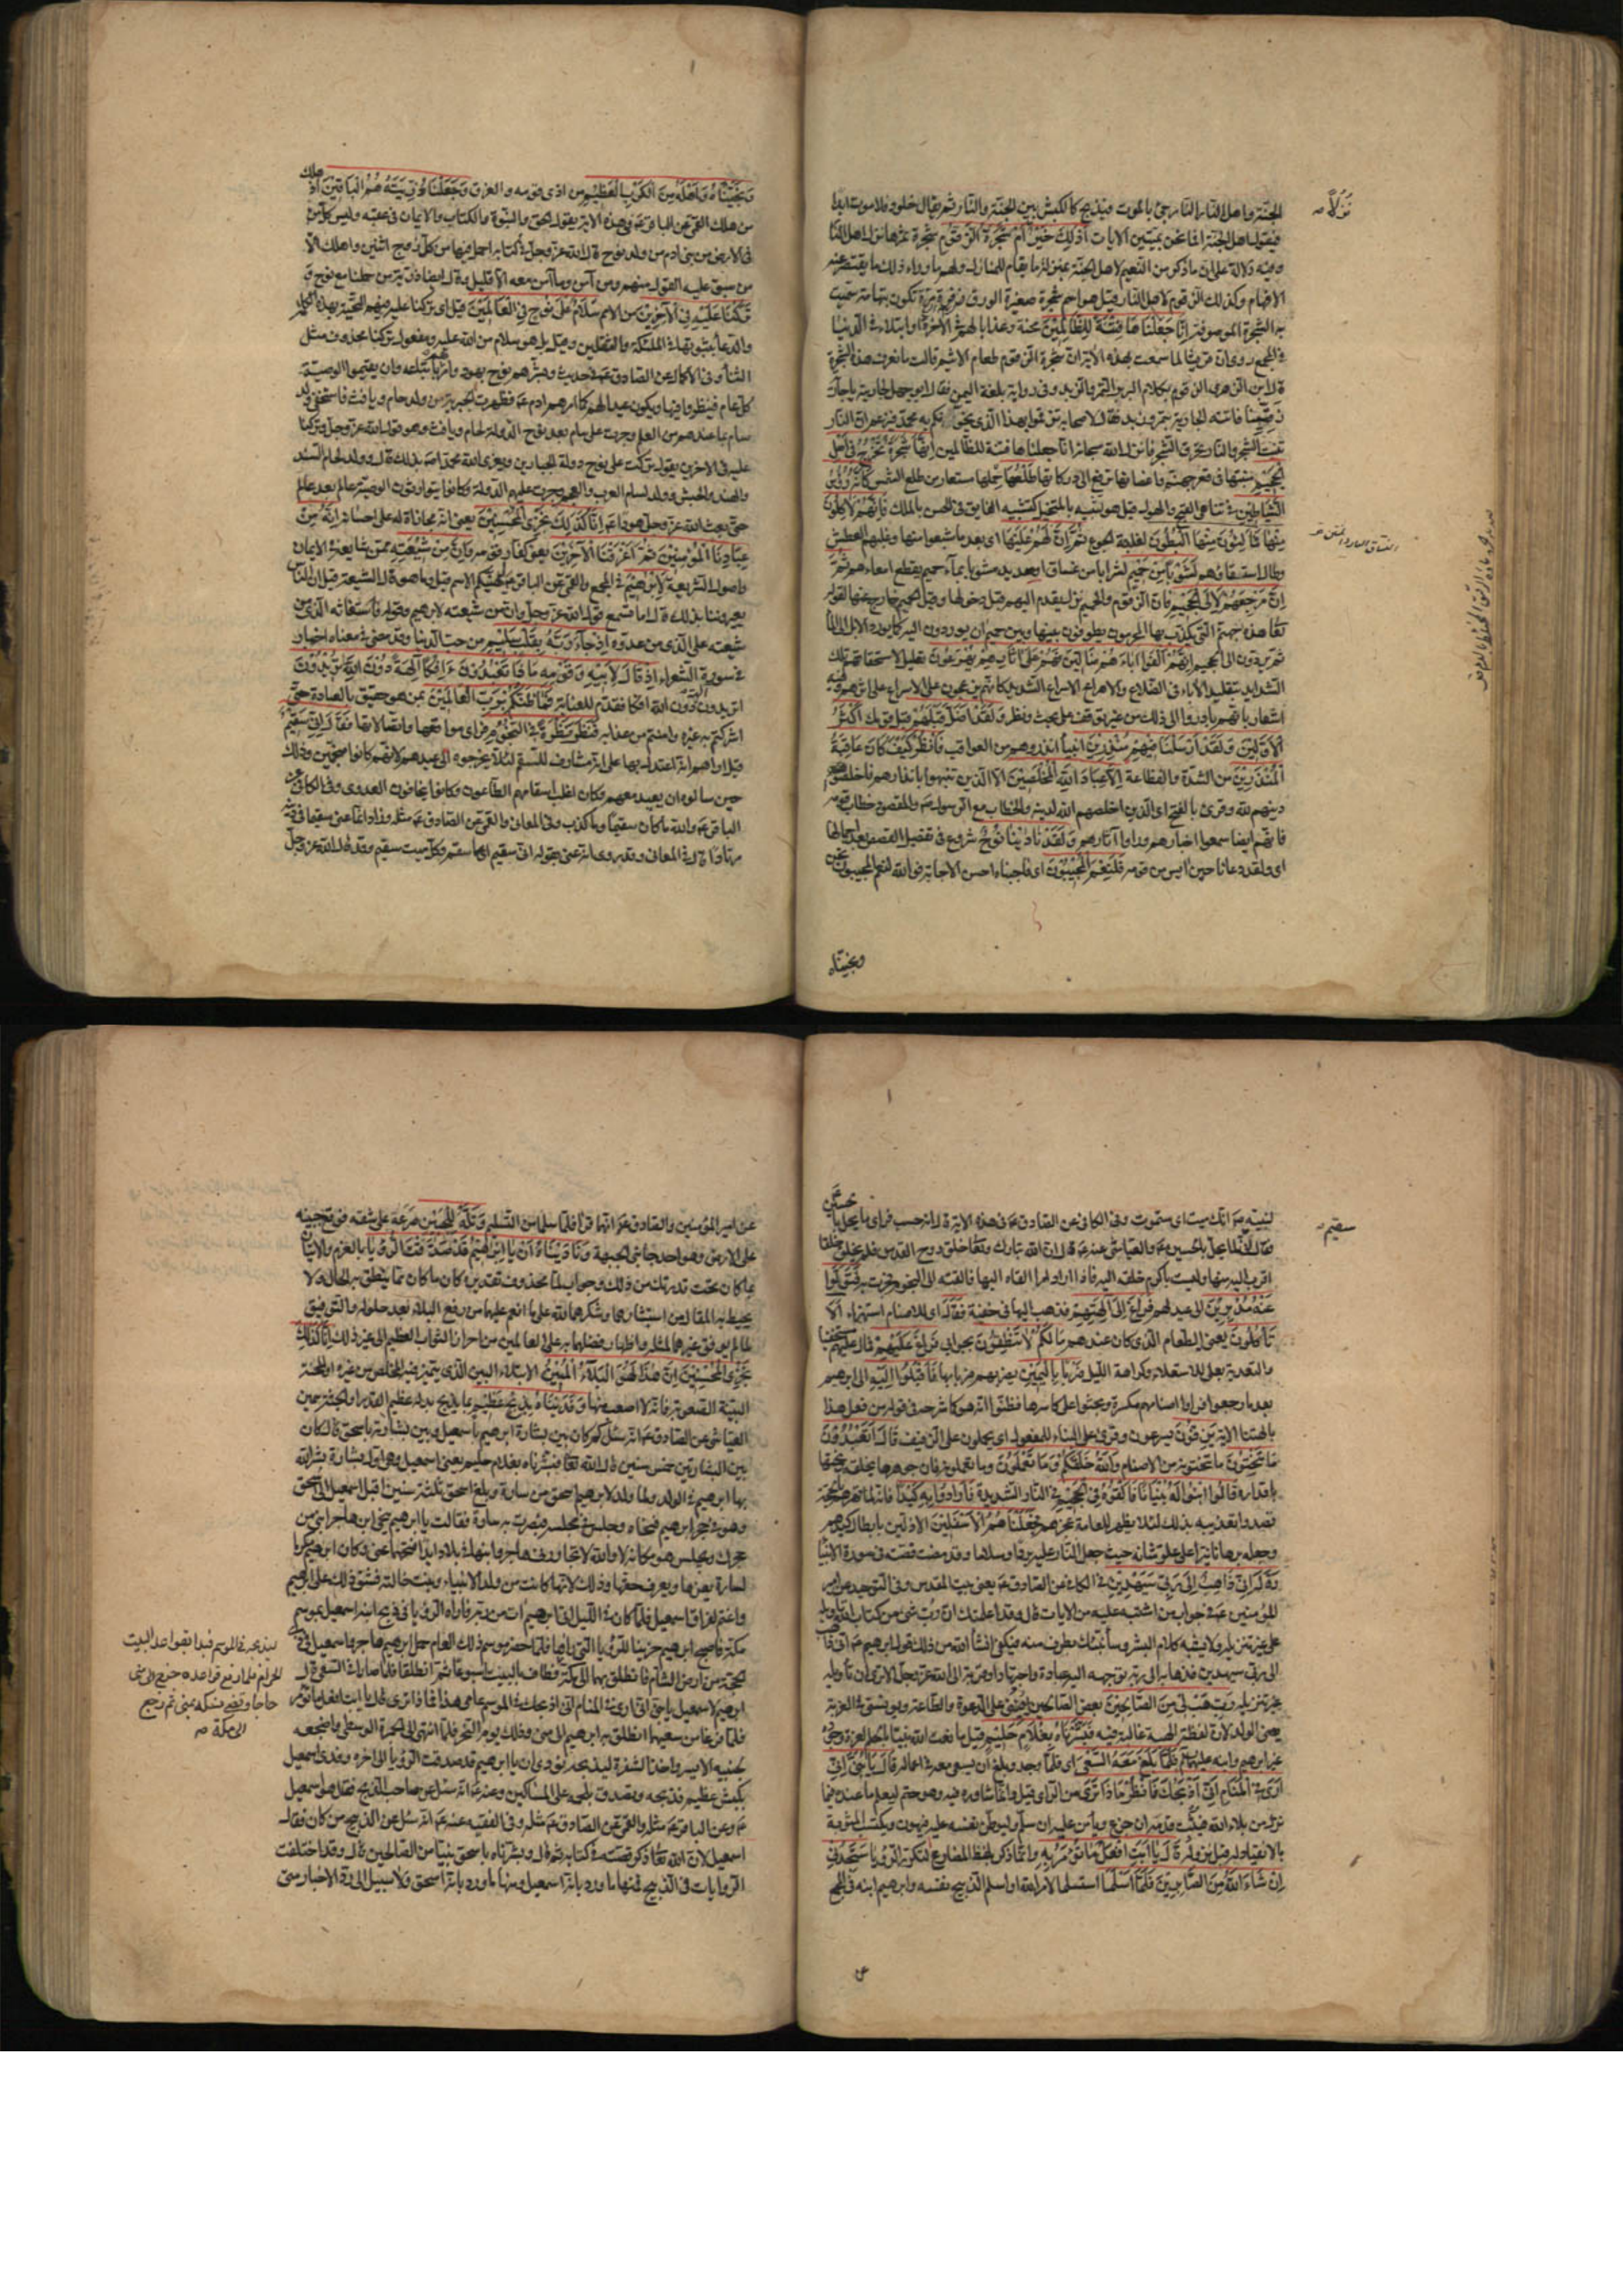 نُزُلًا صح
الجنة واهل النار النار جئ بالموت فيذبح كالكبش بين الجنة والنار ثم يقال خلود فلا موت ابدا
فيقول اهل الجنة افما نحن بميتين الايات أَذَلِكَ خَيْرٌ أَمْ شَجَرَةُ الزَّقُّومِ شجرة ثمرها نزل اهل النار
وفيه دلالة على ان ما ذكر من النعيم لاهل الجنة بمنزلة ما يقام للنازل ولهم ما وراء ذلك ما يقصر عنه
الافهام وكذلك الزقوم لاهل النار قيل هو اسم شجرة صغيرة الورق مرة تكون بتهامة سميت
به الشجرة الموصوفة إِنَّا جَعَلْنَاهَا فِتْنَةً لِلظَّالِمِينَ محنة وعذابا لهم في الاخرة او ابتلاء في الدنيا
في المجمع روى ان قريشا لما سمعت بهذه الاية ان شجرة الزقوم طعام الاثيم قالت ما نعرف هذه الشجرة
قال ابن الزبعرى الزقوم بكلام البربر التمر والزبد وفي رواية بلغة اليمن فقال ابو جهل لجاريته يا جارية
زقمينا فاتته الجارية بتمر وزبد فقال لاصحابه تزقموا بهذا الذي يخوفكم به محمد فيزعم ان النار
تنبت الشجر والنار تحرق الشجر فانزل الله سبحانه انا جعلناها فتنة للظالمين إِنَّهَا شَجَرَةٌ تَخْرُجُ فِي أَصْلِ
الْجَحِيمِ منبتها في قعر جهنم واغصانها ترفع الى دركاتها طَلْعُهَا حملها مستعار من طلع التمر كَأَنَّهُ رُءُوسُ
الشَّيَاطِينِ في تناهي القبح والهول قيل هو تشبيه بالمتخيل كتشبيه الفائق في الحسن بالملك فَإِنَّهُمْ لَآكِلُونَ
مِنْهَا فَمَالِئُونَ مِنْهَا الْبُطُونَ لغلبة الجوع ثُمَّ إِنَّ لَهُمْ عَلَيْهَا اى بعد ما شبعوا منها وغلبهم العطش
وطال استسقاؤهم لَشَوْبًا مِنْ حَمِيمٍ لشرابا من غساق او صديد مشوبا بماء حميم يقطع امعاءهم ثُمَّ
إِنَّ مَرْجِعَهُمْ لَإِلَى الْجَحِيمِ فان الزقوم والحميم نزل يقدم اليهم قبل دخولها وقيل الحميم خارج عنها لقوله
تعالى هذه جهنم التي يكذب بها المجرمون يطوفون بينها وبين حميم ان يوردون اليه كما يورد الابل الى الماء
ثم يردون الى الجحيم إِنَّهُمْ أَلْفَوْا آبَاءَهُمْ ضَالِّينَ فَهُمْ عَلَى آثَارِهِمْ يُهْرَعُونَ تعليل لاستحقاقهم تلك
الشدايد بتقليد الاباء في الضلال والاهراع الاسراع الشديد كانهم يزعجون على الاسراع على اثرهم وفيه
اشعار بانهم بادروا الى ذلك من غير توقف على بحث ونظر وَلَقَدْ ضَلَّ قَبْلَهُمْ قبل قومك أَكْثَرُ
الْأَوَّلِينَ وَلَقَدْ أَرْسَلْنَا فِيهِمْ مُنْذِرِينَ انبياء انذروهم من العواقب فَانْظُرْ كَيْفَ كَانَ عَاقِبَةُ
الْمُنْذَرِينَ من الشدة والفظاعة إِلَّا عِبَادَ اللَّهِ الْمُخْلَصِينَ الا الذين تنبهوا بانذارهم فاخلصوا
دينهم لله وقرئ بالفتح اى الذين اخلصهم الله لدينه والخطاب مع الرسول ص والمقصود خطاب قومه
فانهم ايضا سمعوا اخبارهم وراوا اثارهم وَلَقَدْ نَادَيْنَا نُوحٌ شروع في تفصيل القصص بعد اجمالها
اى ولقد دعانا حين ايس من قومه فَلَنِعْمَ الْمُجِيبُونَ اى فاجبناه احسن الاجابة فوالله لنعم المجيبون نحن
ونجيناه
وَنَجَّيْنَاهُ وَأَهْلَهُ مِنَ الْكَرْبِ الْعَظِيمِ من اذى قومه والغرق وَجَعَلْنَا ذُرِّيَّتَهُ هُمُ الْبَاقِينَ اذ هلك
من هلك القمي عن الباقر ع في هذه الاية يقول الحق والنبوة والكتاب والايمان في عقبه وليس كل من
في الارض من بني ادم من ولد نوح قال الله عز وجل في كتابه احمل فيها من كل زوجين اثنين واهلك الا
من سبق عليه القول منهم ومن آمن وما آمن معه الا قليل وقال ايضا ذرية من حملنا مع نوح وَ
تَرَكْنَا عَلَيْهِ فِي الْآخِرِينَ من الامم سَلَامٌ عَلَى نُوحٍ فِي الْعَالَمِينَ قيل اى تركنا عليه فيهم التحية بهذا الكلام
والدعاء بثبوتها في الملئكة والثقلين وقيل بل هو سلام من الله عليه ومفعول تركنا محذوف مثل
الثناء وفي الاكمال عن الصادق ع في حديث وبشرهم نوح بهود وامرهم باتباعه وان يقيموا الوصية
كل عام فينظروا فيها ويكون عيدا لهم كما امرهم ادم ع فظهرت الجبرية من ولد حام ويافث فاستخفى ولد
سام بما عندهم من العلم وجرت على سام بعد نوح الدولة لحام ويافث وهو قول الله عز وجل وتركنا
عليه في الاخرين يقول تركت على نوح دولة الجبارين ويعزى الله محمدا ص بذلك قال وولد لحام السند
والهند والحبش وولد لسام العرب والعجم وجرت عليهم الدولة وكانوا يتوارثون الوصية عالم بعد عالم
حتى بعث الله عز وجل هودا ع إِنَّا كَذَلِكَ نَجْزِي الْمُحْسِنِينَ يعني انه مجازاة له على احسانه إِنَّهُ مِنْ
عِبَادِنَا الْمُؤْمِنِينَ ثُمَّ أَغْرَقْنَا الْآخَرِينَ يعني كفار قومه وَإِنَّ مِنْ شِيعَتِهِ ممن شايعه في الايمان
واصول الشريعة لَإِبْرَاهِيمَ في المجمع والقمي عن الباقر ع ليهنئكم الاسم قيل وما هو قال الشيعة قيل ان الناس
يعيروننا بذلك قال اما تسمع قول الله عز وجل وان من شيعته لابرهيم وقوله فاستغاثه الذي من
شيعته على الذي من عدوه إِذْ جَاءَ رَبَّهُ بِقَلْبٍ سَلِيمٍ من حب الدنيا وقد مضى في معناه اخبار
في سورة الشعراء إِذْ قَالَ لِأَبِيهِ وَقَوْمِهِ مَاذَا تَعْبُدُونَ أَئِفْكًا آلِهَةً دُونَ اللَّهِ تُرِيدُونَ
اتريدون الهة دون الله افكا فقدم للعناية فَمَا ظَنُّكُمْ بِرَبِّ الْعَالَمِينَ بمن هو حقيق بالعبادة حتى
اشركتم به غيره وامنتم من عذابه فَنَظَرَ نَظْرَةً فِي النُّجُومِ فراى مواقعها واتصالاتها فَقَالَ إِنِّي سَقِيمٌ
قيل اراهم انه استدل بها على انه مشارف للسقم لئلا يخرجوه الى عيدهم لانهم كانوا منجمين وذلك
حين سالوه ان يعيد معهم وكان اغلب اسقامهم الطاعون وكانوا يخافون العدوى وفي الكافي عن
الباقر ع والله ما كان سقيما وما كذب وفي المعاني والقمي عن الصادق ع مثله وزاد انما عنى سقيما في دينه
مرتادا قال في المعاني وقد روى انه عنى بقوله انى سقيم اى ساسقم وكل ميت سقيم وقد قال الله عز وجل
سقيم صح
لنبيه ص انك ميت اى ستموت وفي الكافي عن الصادق ع في هذه الاية قال انه حسب فراى ما يحل بالحسين
فقال انى سقيم لما يحل بالحسين ع والعياشي عنه ع قال ان الله تبارك وتعالى خلق روح القدس فلم يخلق خلقا
اقرب اليه منها وليست باكرم خلقه اليه فاذا اراد امرا القاه اليها فالقته الى النجوم فجرت به فَتَوَلَّوْا
عَنْهُ مُدْبِرِينَ الى عيدهم فَرَاغَ إِلَى آلِهَتِهِمْ فذهب اليها في خفية فَقَالَ اى للاصنام استهزاء أَلَا
تَأْكُلُونَ يعني الطعام الذي كان عندهم مَا لَكُمْ لَا تَنْطِقُونَ بجوابي فَرَاغَ عَلَيْهِمْ فمال عليهم مستخفيا
والتعدية بعلى للاستعلاء وكراهة الميل ضَرْبًا بِالْيَمِينِ يضربهم ضربا بها فَأَقْبَلُوا إِلَيْهِ الى ابرهيم
بعد ما رجعوا فراوا اصنامهم مكسرة وبحثوا على كاسرها فظنوا انه هو كما شرحه في قوله من فعل هذا
بالهتنا الاية يَزِفُّونَ يسرعون وقرئ على البناء للمفعول اى يحملون على الزفيف قَالَ أَتَعْبُدُونَ
مَا تَنْحِتُونَ ما تنحتونه من الاصنام وَاللَّهُ خَلَقَكُمْ وَمَا تَعْمَلُونَ وما تعملونه فان جوهرها بخلقه ونحتها
باقداره قَالُوا ابْنُوا لَهُ بُنْيَانًا فَأَلْقُوهُ فِي الْجَحِيمِ في النار الشديدة فَأَرَادُوا بِهِ كَيْدًا فانه لما قهرهم بالحجة
قصدوا تعذيبه بذلك لئلا يظهر للعامة عجزهم فَجَعَلْنَاهُمُ الْأَسْفَلِينَ الاذلين بابطال كيدهم
وجعله برهانا نيرا على علو شانه حيث جعل النار عليه بردا وسلاما وقد مضت قصته في سورة الانبياء
وَقَالَ إِنِّي ذَاهِبٌ إِلَى رَبِّي سَيَهْدِينِ في الكافي عن الصادق ع يعني بيت المقدس وفي التوحيد عن امير
المؤمنين ع في جواب من اشتبه عليه من الايات قال وقد اعلمتك ان رب شئ من كتاب الله تاويله
على غير تنزيله ولا يشبه كلام البشر وسانبئك بطرف منه فيكفى انشاء الله من ذلك قول ابرهيم ع انى ذاهب
الى ربي سيهدين فذهابه الى ربه توجهه اليه عبادة واجتهادا وقربة الى الله عز وجل الا ترى ان تاويله
غير تنزيله رَبِّ هَبْ لِي مِنَ الصَّالِحِينَ بعض الصالحين يعينني على الدعوة والطاعة ويونسني في الغربة
يعني الولد لان لفظة الهبة غالبة فيه فَبَشَّرْنَاهُ بِغُلَامٍ حَلِيمٍ قيل ما نعت الله نبيا بالحلم لعزة وجوده
غير ابرهيم وابنه عليهما السلام فَلَمَّا بَلَغَ مَعَهُ السَّعْيَ اى فلما وجد وبلغ ان يسعى معه في اعماله قَالَ يَا بُنَيَّ إِنِّي
أَرَى فِي الْمَنَامِ أَنِّي أَذْبَحُكَ فَانْظُرْ مَاذَا تَرَى من الراى قيل وانما شاوره فيه وهو حتم ليعلم ما عنده فيما
نزل من بلاء الله فيثبت قدمه ان جزع ويامن عليه ان سلم وليوطن نفسه عليه فيهون ويكتسب المثوبة
بالانقياد له قبل نزوله قَالَ يَا أَبَتِ افْعَلْ مَا تُؤْمَرُ به وانما ذكر بلفظ المضارع لتكرر الرؤيا سَتَجِدُنِي
إِنْ شَاءَ اللَّهُ مِنَ الصَّابِرِينَ فَلَمَّا أَسْلَمَا استسلما لامر الله او اسلم الذبيح نفسه وابرهيم ابنه في المجمع
عن
عن امير المؤمنين والصادق ع انهما قرءا فلما سلما من التسليم وَتَلَّهُ لِلْجَبِينِ صرعه على شقه فوقع جبينه
على الارض وهو احد جانبي الجبهة وَنَادَيْنَاهُ أَنْ يَا إِبْرَاهِيمُ قَدْ صَدَّقْتَ الرُّؤْيَا بالعزم والاتيان
بما كان تحت قدرتك من ذلك وجواب لما محذوف تقديره كان ما كان مما ينطق به الحال ولا
يحيط به المقال من استبشارهما وشكرهما لله على ما انعم عليهما من رفع البلاء بعد حلوله والتوفيق
لما لم يوفق غيرهما لمثله واظهار فضلهما به على العالمين مع احراز الثواب العظيم الى غير ذلك إِنَّا كَذَلِكَ
نَجْزِي الْمُحْسِنِينَ إِنَّ هَذَا لَهُوَ الْبَلَاءُ الْمُبِينُ الابتلاء البين الذي يتميز فيه المخلص من غيره او المحنة
البينة الصعوبة فانه لا اصعب منها وَفَدَيْنَاهُ بِذِبْحٍ عَظِيمٍ بما يذبح بدله عظيم القدر او الجثة سمين
العياشي عن الصادق ع انه سئل كم كان بين بشارة ابرهيم باسمعيل وبين بشارته باسحق قال كان
بين البشارتين خمس سنين قال الله تعالى فبشرناه بغلام حليم يعني اسمعيل وهي اول بشارة بشر الله
بها ابرهيم في الولد ولما ولد لابرهيم اسحق من سارة وبلغ اسحق ثلاث سنين اقبل اسمعيل الى اسحق
وهو في حجر ابرهيم فنحاه وجلس في مجلسه فبصرت به سارة فقالت يا ابرهيم ينحى ابن هاجر ابني من
حجرك ويجلس هو مكانه لا والله لا تجاورني هاجر وابنها في بلاد ابدا فنحهما عني وكان ابرهيم مكرما
لسارة يعزها ويعرف حقها وذلك لانها كانت من ولد الانبياء وبنت خالته فشق ذلك على ابرهيم
واغتم لفراق اسمعيل فلما كان في الليل اتى ابرهيم ات من ربه فاراه الرؤيا في ذبح ابنه اسمعيل بموسم
مكة فاصبح ابرهيم حزينا للرؤيا التي راها فلما حضر موسم ذلك العام حمل ابرهيم هاجر واسمعيل في ذي
الحجة من ارض الشام فانطلق بهما الى مكة فطاف بالبيت اسبوعا ثم انطلقا فلما صارا في السعي قال
ابرهيم لاسمعيل يا بني اني ارى في المنام اني اذبحك في الموسم عامي هذا فماذا ترى قال يا ابت افعل ما تؤمر
فلما فرغا من سعيهما انطلق به ابرهيم الى منى وذلك يوم النحر فلما انتهى الى الجمرة الوسطى واضجعه
لجنبه الايسر واخذ الشفرة ليذبحه نودي ان يا ابرهيم قد صدقت الرؤيا الى اخره وفدى اسمعيل
بكبش عظيم فذبحه وتصدق بلحمه على المساكين وعنه ع انه سئل عن صاحب الذبح فقال هو اسمعيل
ع وعن الباقر ع مثله والقمي عن الصادق ع مثله وفي الفقيه عنه ع انه سئل عن الذبيح من كان فقال
اسمعيل لان الله تعالى ذكر قصته في كتابه ثم قال وبشرناه باسحق نبيا من الصالحين قال وقد اختلفت
الروايات في الذبيح فمنها ما ورد بانه اسمعيل ومنها ما ورد بانه اسحق ولا سبيل الى رد الاخبار متى
ليذبحه في الموسم فبدا بقواعد البيت
الحرام فلما رفع قواعده خرج الى منى
حاجا وقضى نسكه بمنى ثم رجع
الى مكة صح